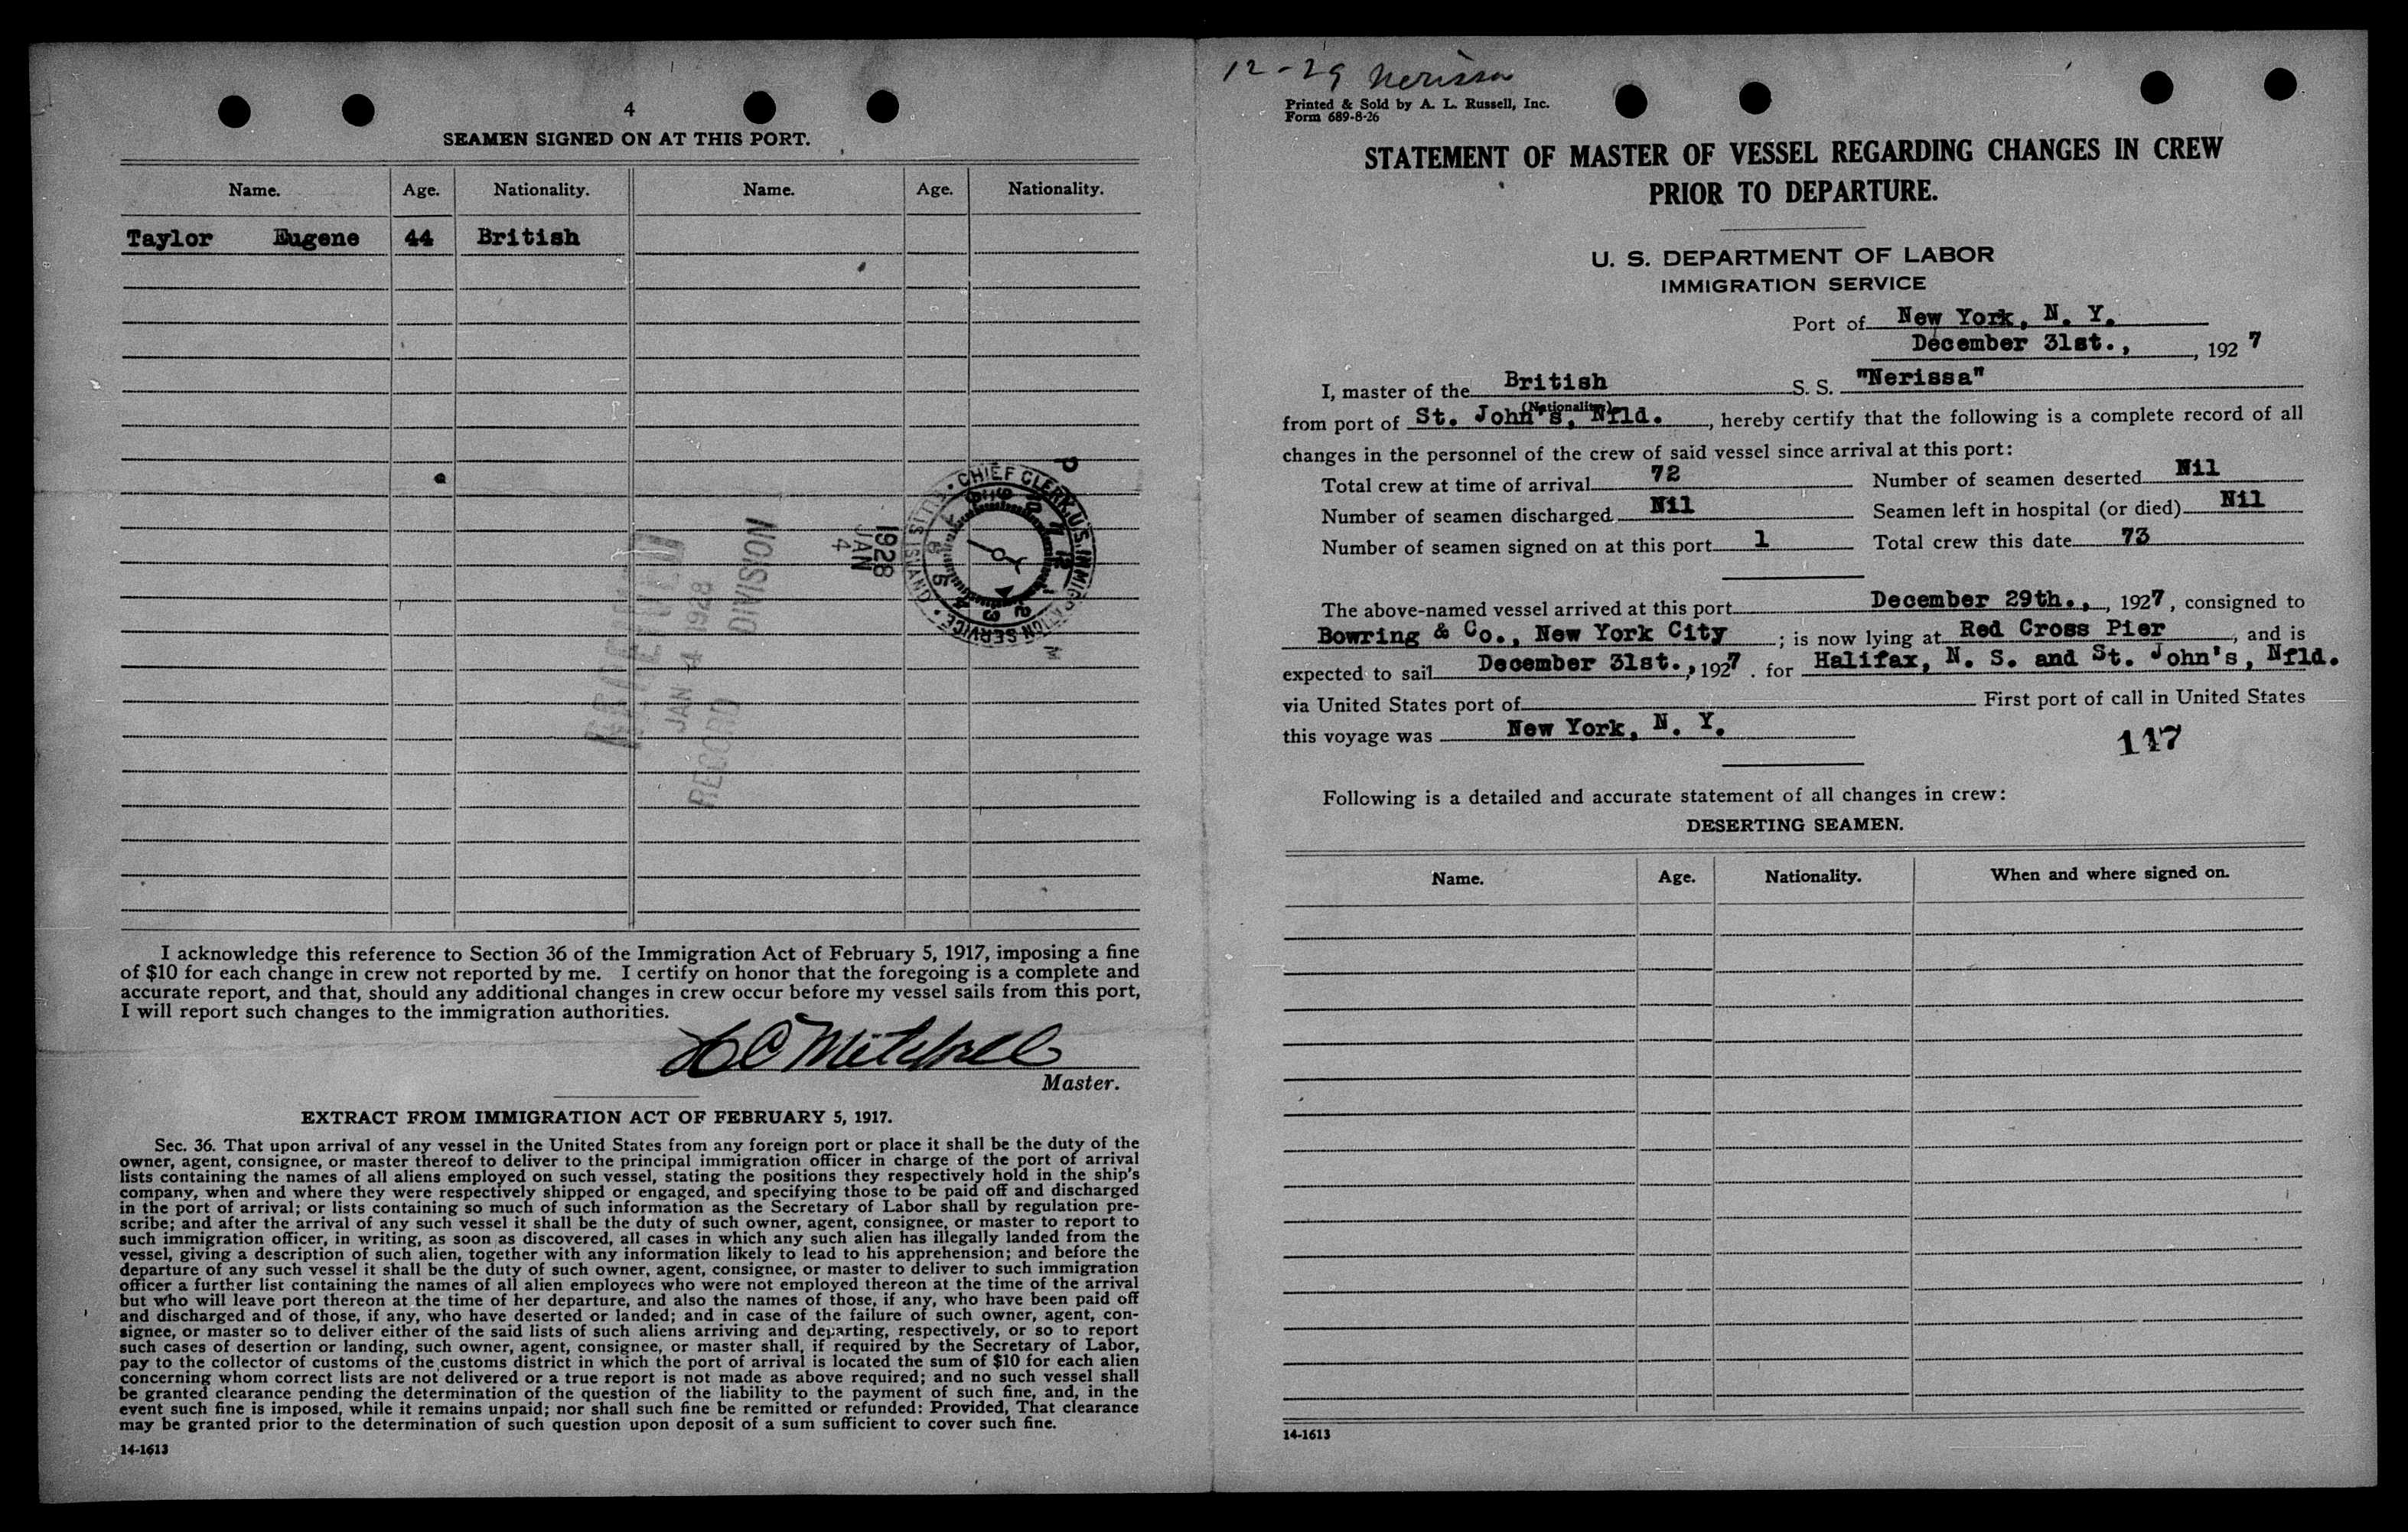 4
SEAMEN SIGNED ON AT THIS PORT.
Name. Age. Nationality. Name. Age. Nationality.
Taylor Eugene 44 British
CHIEF CLERK, U.S. IMMIGRATION SERVICE
1928
JAN
4
P
M
JAN 4 1928
RECORD DIVISION
I acknowledge this reference to Section 36 of the Immigration Act of February 5, 1917, imposing a fine
of $10 for each change in crew not reported by me. I certify on honor that the foregoing is a complete and
accurate report, and that, should any additional changes in crew occur before my vessel sails from this port,
I will report such changes to the immigration authorities.
Mitchell
Master.
EXTRACT FROM IMMIGRATION ACT OF FEBRUARY 5, 1917.
Sec. 36. That upon arrival of any vessel in the United States from any foreign port or place it shall be the duty of the
owner, agent, consignee, or master thereof to deliver to the principal immigration officer in charge of the port of arrival
lists containing the names of all aliens employed on such vessel, stating the positions they respectively hold in the ship's
company, when and where they were respectively shipped or engaged, and specifying those to be paid off and discharged
in the port of arrival; or lists containing so much of such information as the Secretary of Labor shall by regulation pre-
scribe; and after the arrival of any such vessel it shall be the duty of such owner, agent, consignee, or master to report to
such immigration officer, in writing, as soon as discovered, all cases in which any such alien has illegally landed from the
vessel, giving a description of such alien, together with any information likely to lead to his apprehension; and before the
departure of any such vessel it shall be the duty of such owner, agent, consignee, or master to deliver to such immigration
officer a further list containing the names of all alien employees who were not employed thereon at the time of the arrival
but who will leave port thereon at the time of her departure, and also the names of those, if any, who have been paid off
and discharged and of those, if any, who have deserted or landed; and in case of the failure of such owner, agent, con-
signee, or master so to deliver either of the said lists of such aliens arriving and departing, respectively, or so to report
such cases of desertion or landing, such owner, agent, consignee, or master shall, if required by the Secretary of Labor,
pay to the collector of customs of the customs district in which the port of arrival is located the sum of $10 for each alien
concerning whom correct lists are not delivered or a true report is not made as above required; and no such vessel shall
be granted clearance pending the determination of the question of the liability to the payment of such fine, and, in the
event such fine is imposed, while it remains unpaid; nor shall such fine be remitted or refunded: Provided, That clearance
may be granted prior to the determination of such question upon deposit of a sum sufficient to cover such fine.
14-1613
12-29 Nerissa
Printed & Sold by A. L. Russell, Inc.
Form 689-8-26
STATEMENT OF MASTER OF VESSEL REGARDING CHANGES IN CREW
PRIOR TO DEPARTURE.
U. S. DEPARTMENT OF LABOR
IMMIGRATION SERVICE
Port of New York, N. Y.
December 31st., , 1927
I, master of the British S. S. "Nerissa"
(Nationality)
from port of St. John's, Nfld. , hereby certify that the following is a complete record of all
changes in the personnel of the crew of said vessel since arrival at this port:
Total crew at time of arrival 72 Number of seamen deserted Nil
Number of seamen discharged Nil Seamen left in hospital (or died) Nil
Number of seamen signed on at this port 1 Total crew this date 73
The above-named vessel arrived at this port December 29th., , 1927, consigned to
Bowring & Co., New York City ; is now lying at Red Cross Pier , and is
expected to sail December 31st., , 1927 . for Halifax, N. S. and St. John's, Nfld.
via United States port of First port of call in United States
this voyage was New York, N. Y.
117
Following is a detailed and accurate statement of all changes in crew:
DESERTING SEAMEN.
Name. Age. Nationality. When and where signed on.
14-1613